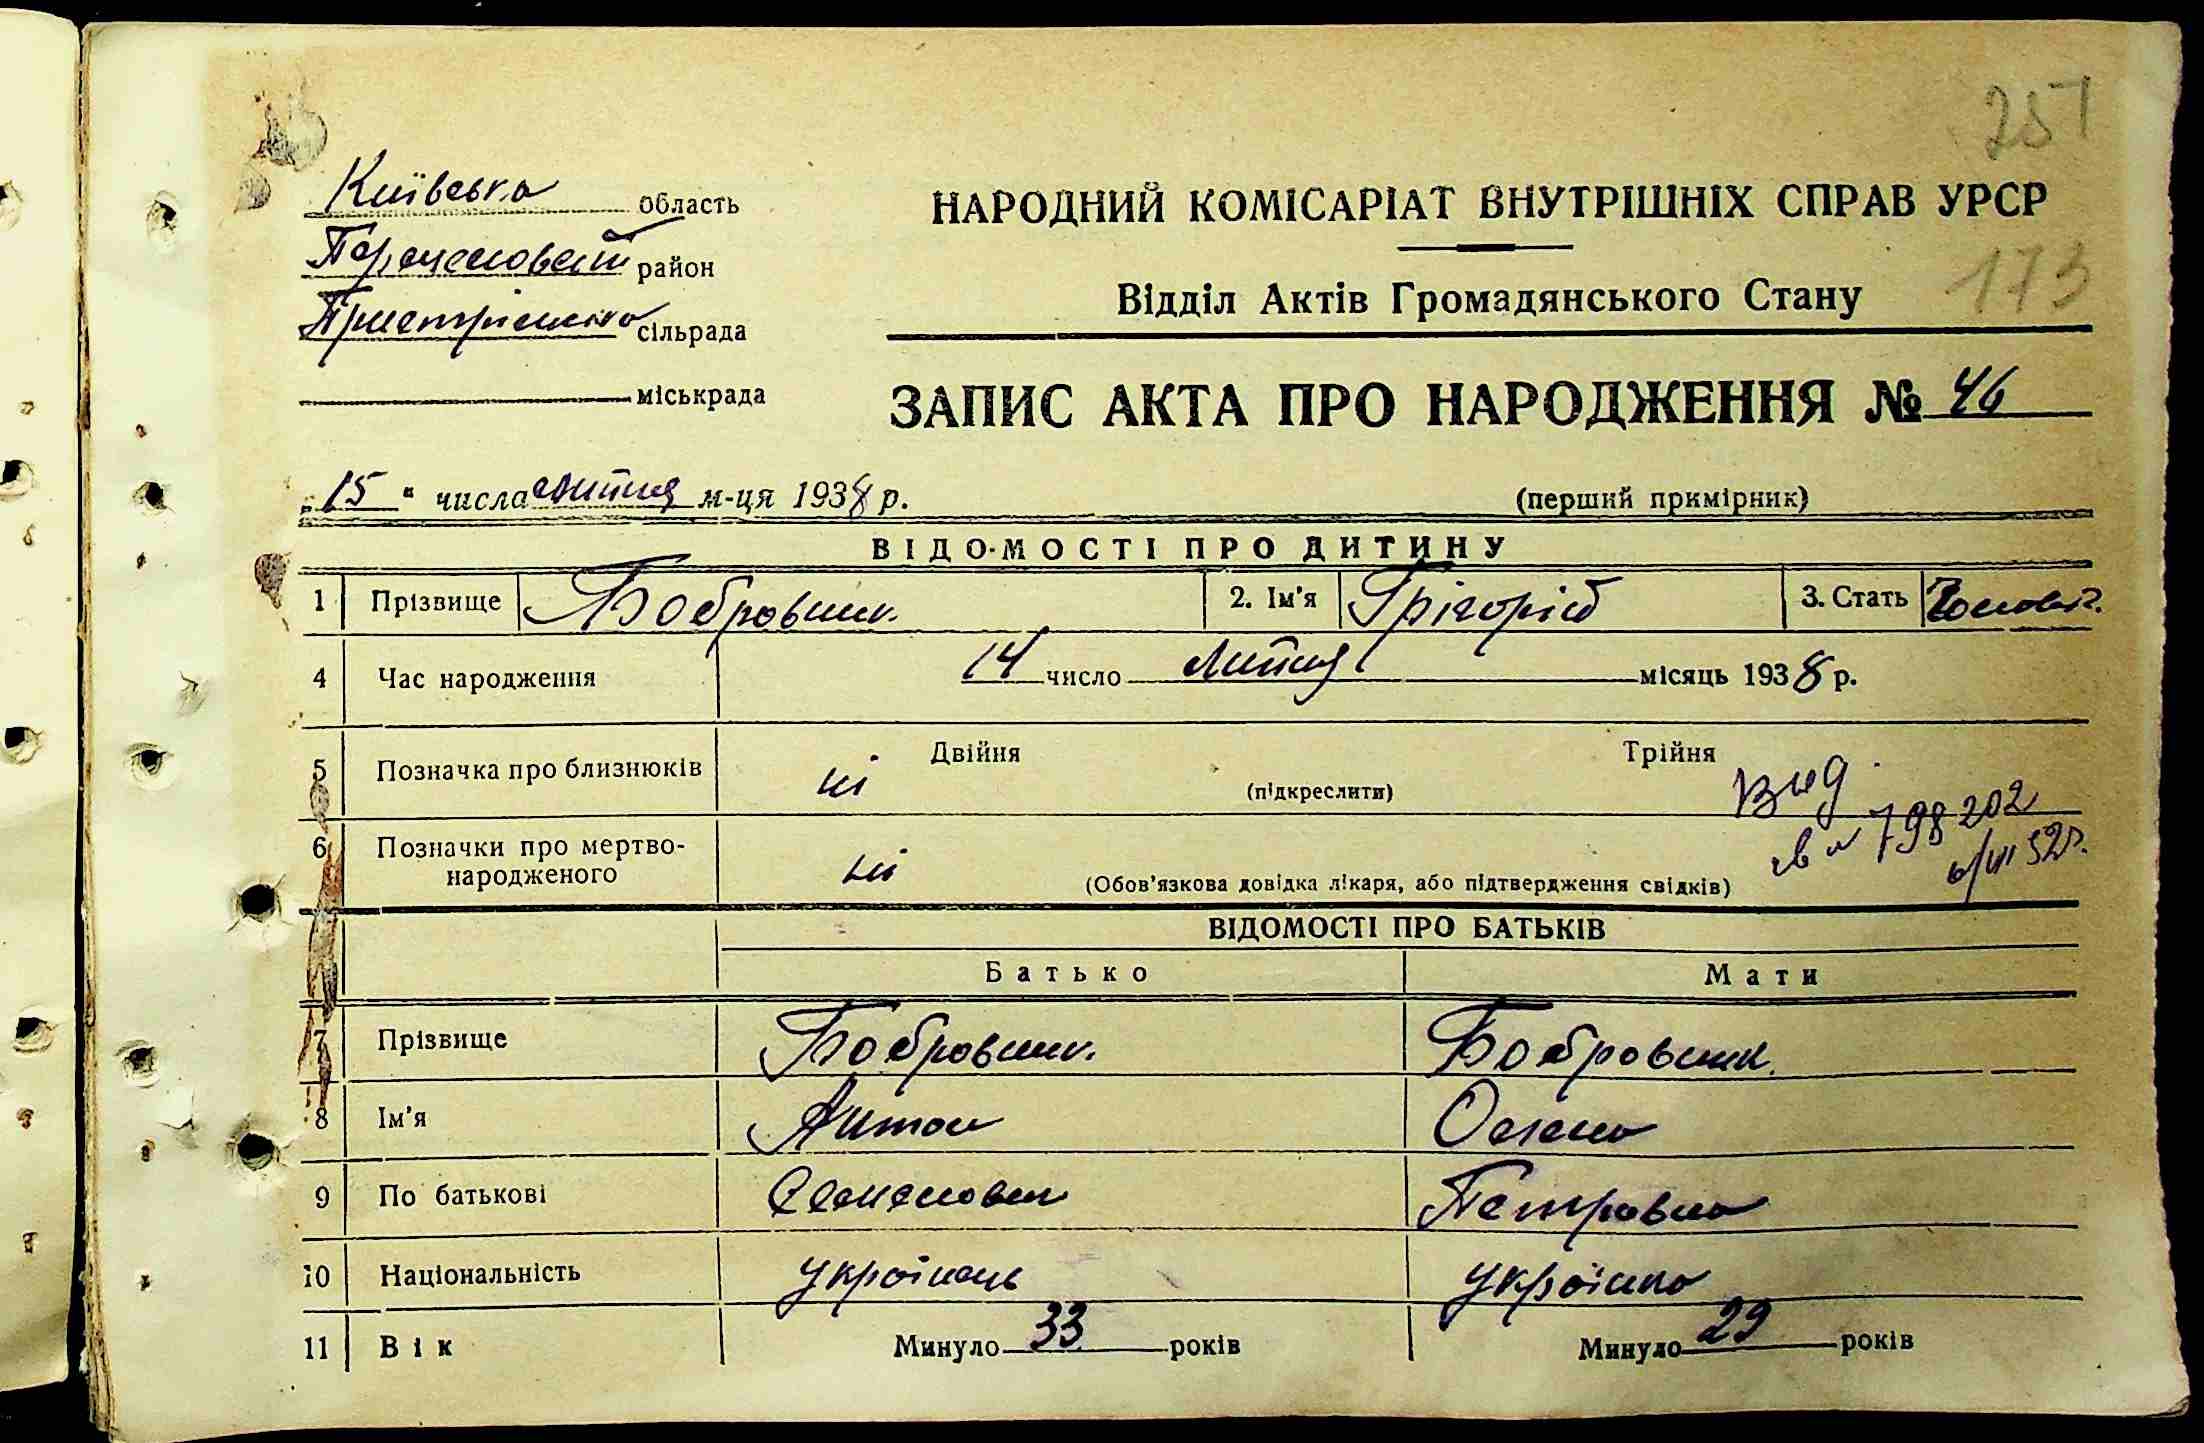 251
Київська область
район
сільрада
міськрада
НАРОДНИЙ КОМІСАРІАТ ВНУТРІШНІХ СПРАВ УРСР
173
Відділ Актів Громадянського Стану
ЗАПИС АКТА ПРО НАРОДЖЕННЯ № 46
„15“ числа липня м-ця 1938 р. (перший примірник)
ВІДОМОСТІ ПРО ДИТИНУ
1 Прізвище Бобровник. 2. Ім'я Грігорій 3. Стать Чоловіч.
4 Час народження 14 число липня місяць 1938 р.
5 Позначка про близнюків ні Двійня (підкреслити) Трійня
Вид.
св № 798202
6 Позначки про мертво-
народженого ні (Обов'язкова довідка лікаря, або підтвердження свідків)
ВІДОМОСТІ ПРО БАТЬКІВ
Батько Мати
7 Прізвище Бобровник. Бобровник.
8 Ім'я Антон Олена
9 По батькові Семенович Петровна
10 Національність українець українка
11 Вік Минуло 33 років Минуло 29 років